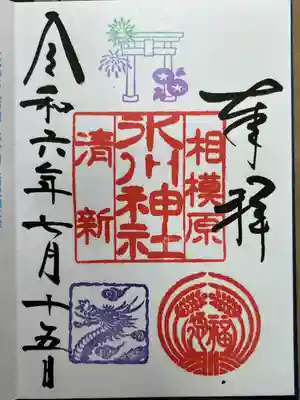 奉拝
相模原
氷川神社
清新
福
令和六年七月十五日